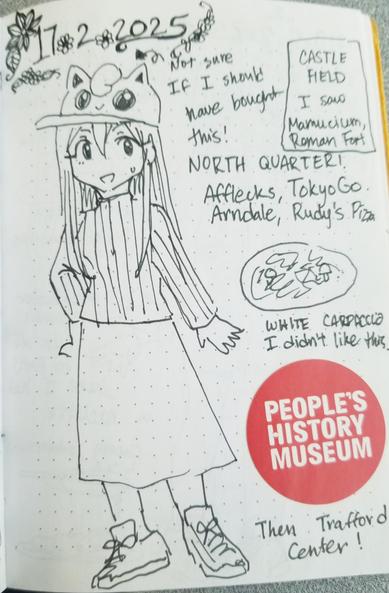 17.2.2025
Not sure
If I should
have bought
this!
CASTLE
FIELD
I saw
Mamucium,
Roman Fort
NORTH QUARTER!
Afflecks, Tokyo Go.
Arndale, Rudy's Pizza
WHITE CARPACCIO
I didn't like this.
PEOPLE'S
HISTORY
MUSEUM
Then Trafford
Center!